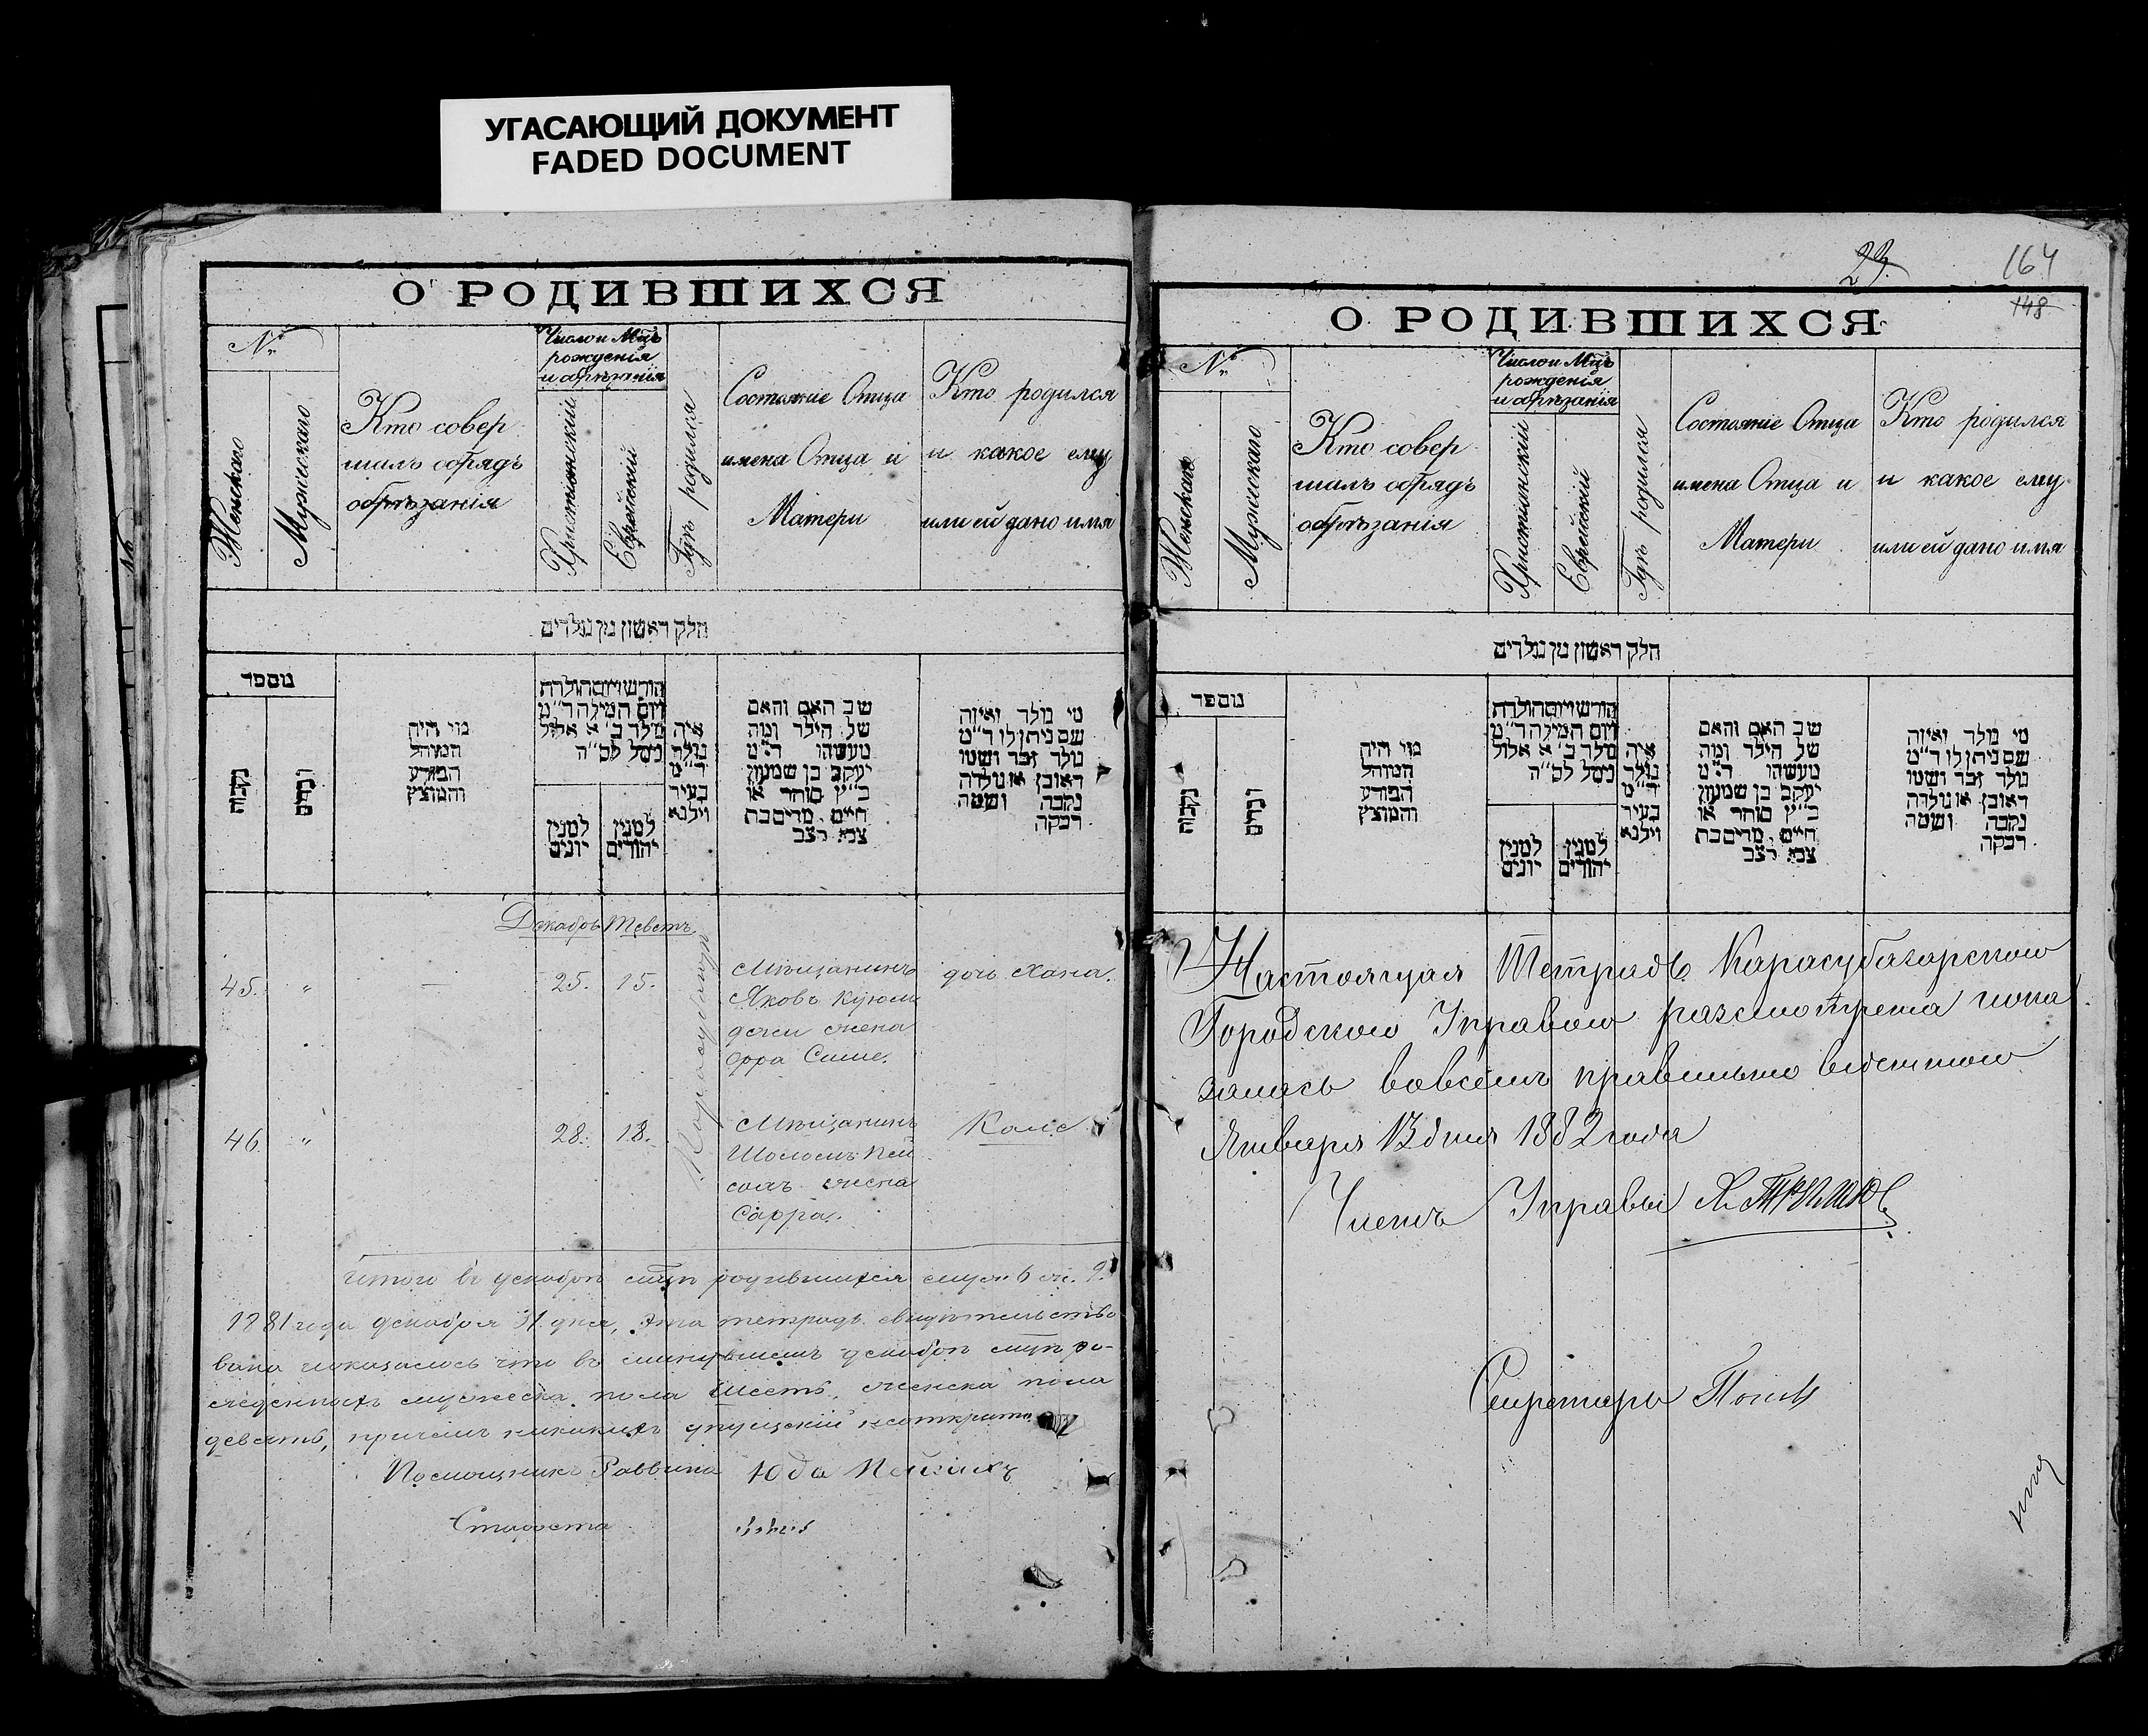 УГАСАЮЩИЙ ДОКУМЕНТ
FADED DOCUMENT
О РОДИВШИХСЯ
№
Женскаго
Мужескаго
Кто совер
шалъ обрядъ
обрѣзанія
Число и Мцъ
рожденія
и обрѣзанія
Христіянскій
Еврейскій
Гдѣ родился
Состояніе Отца
имена Отца и
Матери
Кто родился
и какое ему
или ей дано имя
חלק ראשון מן נולדים
מספר
נקבות
זכרים
מי היה
המוהל
הפורע
והמוצץ
חודש ויום הולדת
ויום המילה ד״מ
נולד ב׳ א אלול
נימל לס״ה
למנין
יונים
למנין
יהודים
איה
נולד
ד״מ
בעיר
וילנא
שב האם והאם
של הילד ומה
מעשהו ד״מ
יעקב בן שמעון
כ״ץ סוחר או
חייט. מרים בת
צבי קצב
מי נולד ואיזה
שם ניתן לו ד״מ
נולד זכר ושמו
ראובן או נולדה
נקבה ושמה
רבקה
Декабрь Теветъ
Карасубазаръ
45. " — 25. 15. Мѣщанинъ дочь Хана.
Яковъ
жена
46. " 28. 18. Мѣщанинъ
Шоломъ Пей
сахъ жена
Сарра.
Итого въ декабрѣ мцѣ родившихся муж. 6 ж. 9.
1881 года декабря 31 дня, Эта тетрадь свидѣтельство
вана и оказалось что въ минувшемъ декабрѣ мцѣ ро-
жденныхъ мужеска пола Шесть, женска пола
девять, причемъ никакихъ упущеній неоткрыто
Помощникъ Раввина Юда Пейсахъ
Староста
23
164
148
О РОДИВШИХСЯ
№
Женскаго
Мужескаго
Кто совер
шалъ обрядъ
обрѣзанія
Число и Мцъ
рожденія
и обрѣзанія
Христіянскій
Еврейскій
Гдѣ родился
Состояніе Отца
имена Отца и
Матери
Кто родился
и какое ему
или ей дано имя
חלק ראשון מן נולדים
מספר
נקבות
זכרים
מי היה
המוהל
הפורע
והמוצץ
חודש ויום הולדת
ויום המילה ד״מ
נולד ב׳ א אלול
נימל לס״ה
למנין
יונים
למנין
יהודים
איה
נולד
ד״מ
בעיר
וילנא
שב האם והאם
של הילד ומה
מעשהו ד״מ
יעקב בן שמעון
כ״ץ סוחר או
חייט. מרים בת
צבי קצב
מי נולד ואיזה
שם ניתן לו ד״מ
נולד זכר ושמו
ראובן או נולדה
נקבה ושמה
רבקה
Настоящая Тетрадь Карасубазарскою
Городскою Управою разсмотрена и ока
залась вовсемъ правильно веденною
Января 13 дня 1882 года
Членъ Управы
Секретарь